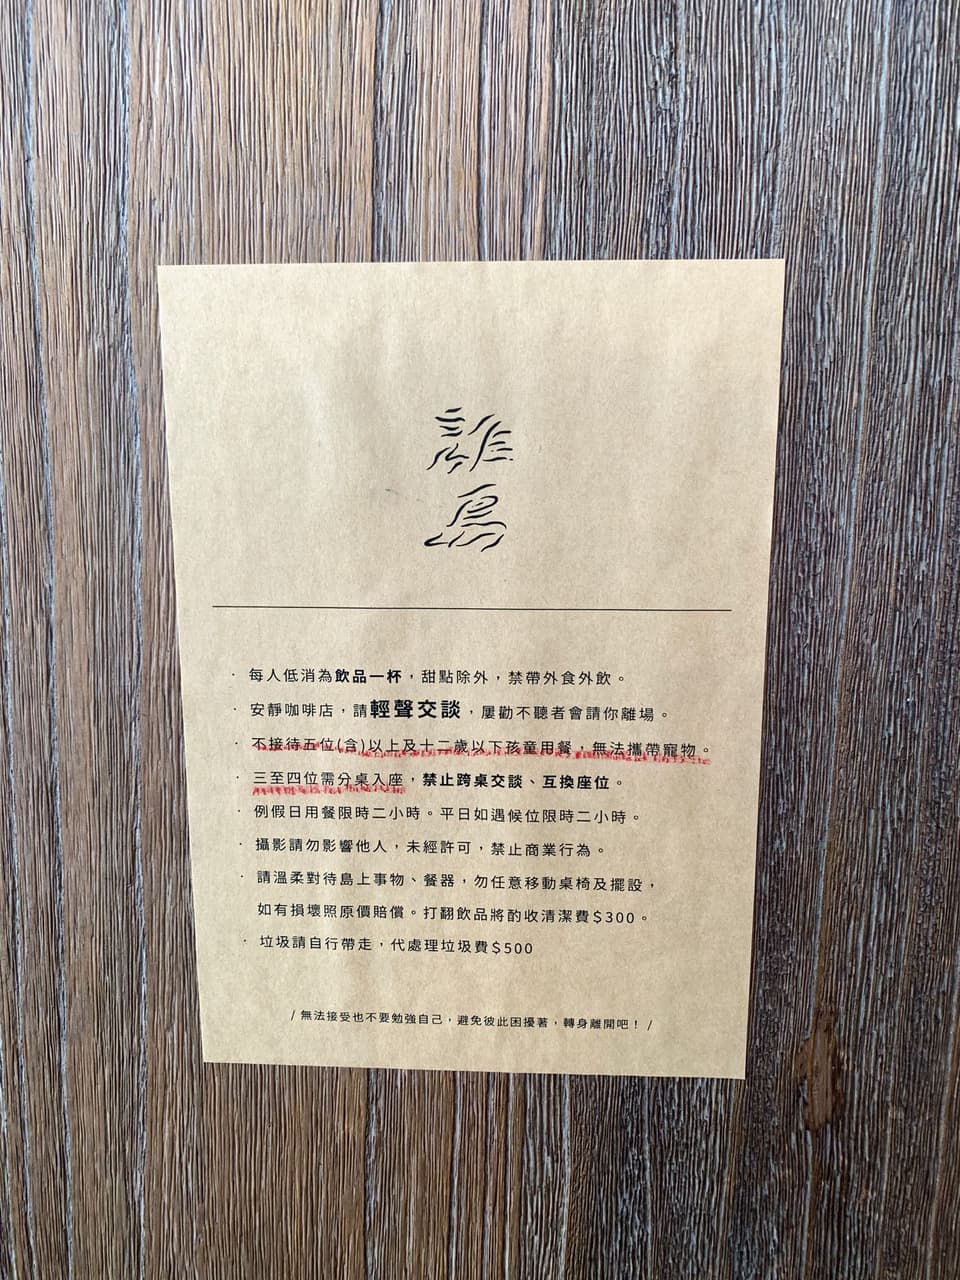 離
島
· 每人低消為飲品一杯，甜點除外，禁帶外食外飲。
· 安靜咖啡店，請輕聲交談，屢勸不聽者會請你離場。
· 不接待五位(含)以上及十二歲以下孩童用餐，無法攜帶寵物。
· 三至四位需分桌入座，禁止跨桌交談、互換座位。
· 例假日用餐限時二小時。平日如遇候位限時二小時。
· 攝影請勿影響他人，未經許可，禁止商業行為。
· 請溫柔對待島上事物、餐器，勿任意移動桌椅及擺設，
如有損壞照原價賠償。打翻飲品將酌收清潔費$300。
· 垃圾請自行帶走，代處理垃圾費$500
/ 無法接受也不要勉強自己，避免彼此困擾著，轉身離開吧！ /